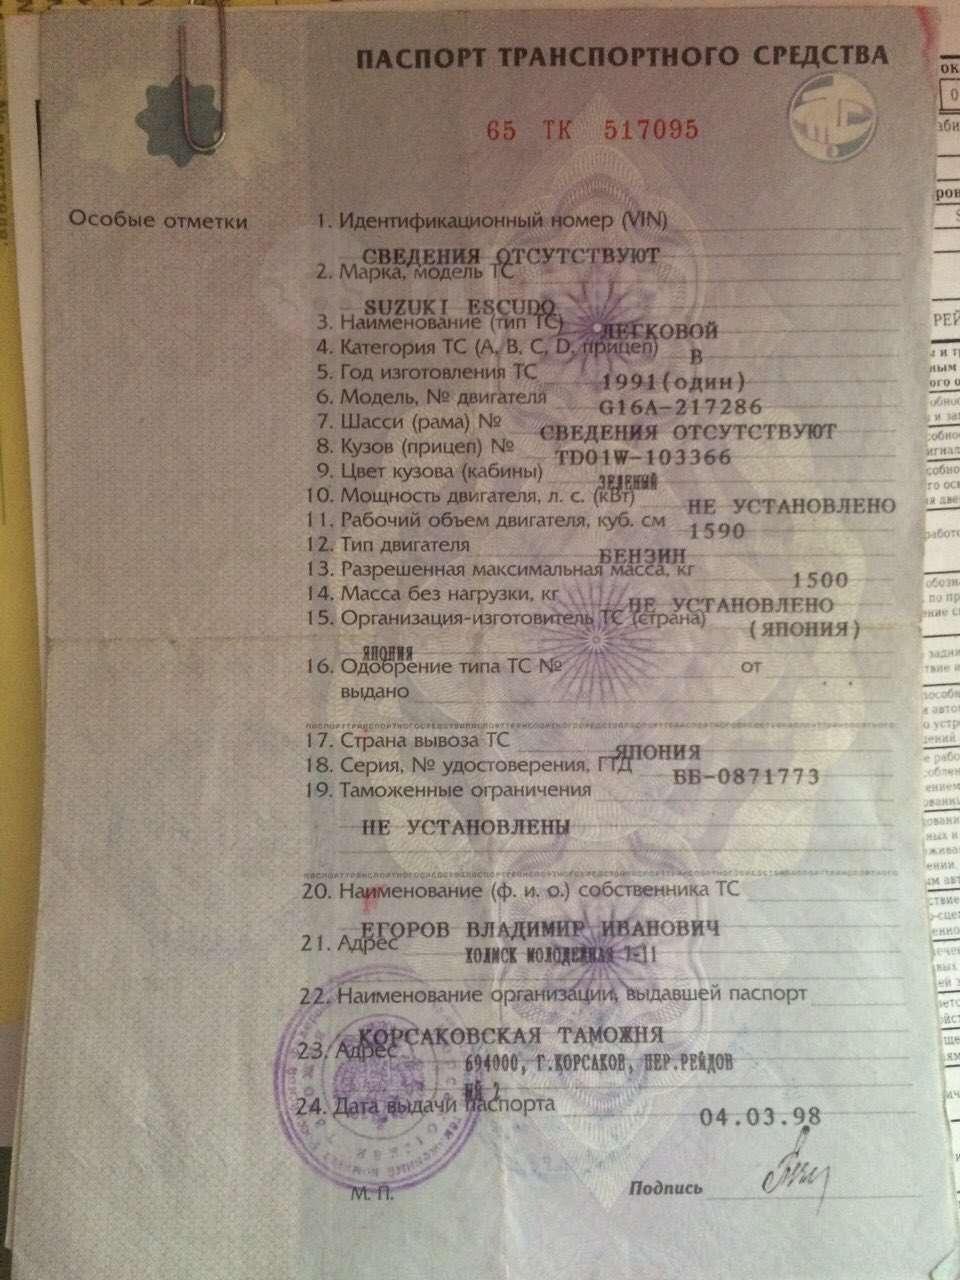 ПАСПОРТ ТРАНСПОРТНОГО СРЕДСТВА
65 ТК 517095
Особые отметки
1. Идентификационный номер (VIN)
СВЕДЕНИЯ ОТСУТСТВУЮТ
2. Марка, модель ТС
SUZUKI ESCUDO
3. Наименование (тип ТС) ЛЕГКОВОЙ
4. Категория ТС (A, B, C, D, прицеп) B
5. Год изготовления ТС 1991(один)
6. Модель, № двигателя G16A-217286
7. Шасси (рама) № СВЕДЕНИЯ ОТСУТСТВУЮТ
8. Кузов (прицеп) № TD01W-103366
9. Цвет кузова (кабины) ЗЕЛЕНЫЙ
10. Мощность двигателя, л. с. (кВт) НЕ УСТАНОВЛЕНО
11. Рабочий объем двигателя, куб. см 1590
12. Тип двигателя БЕНЗИН
13. Разрешенная максимальная масса, кг 1500
14. Масса без нагрузки, кг НЕ УСТАНОВЛЕНО
15. Организация-изготовитель ТС (страна) (ЯПОНИЯ)
ЯПОНИЯ
16. Одобрение типа ТС № от
выдано
17. Страна вывоза ТС ЯПОНИЯ
18. Серия, № удостоверения, ГТД ББ-0871773
19. Таможенные ограничения
НЕ УСТАНОВЛЕНЫ
20. Наименование (ф. и. о.) собственника ТС
ЕГОРОВ ВЛАДИМИР ИВАНОВИЧ
21. Адрес ХОЛМСК МОЛОДЕЖНАЯ 7-11
22. Наименование организации, выдавшей паспорт
КОРСАКОВСКАЯ ТАМОЖНЯ
23. Адрес 694000, Г.КОРСАКОВ, ПЕР.РЕЙДОВ
ЫЙ 2
24. Дата выдачи паспорта 04.03.98
М. П. Подпись